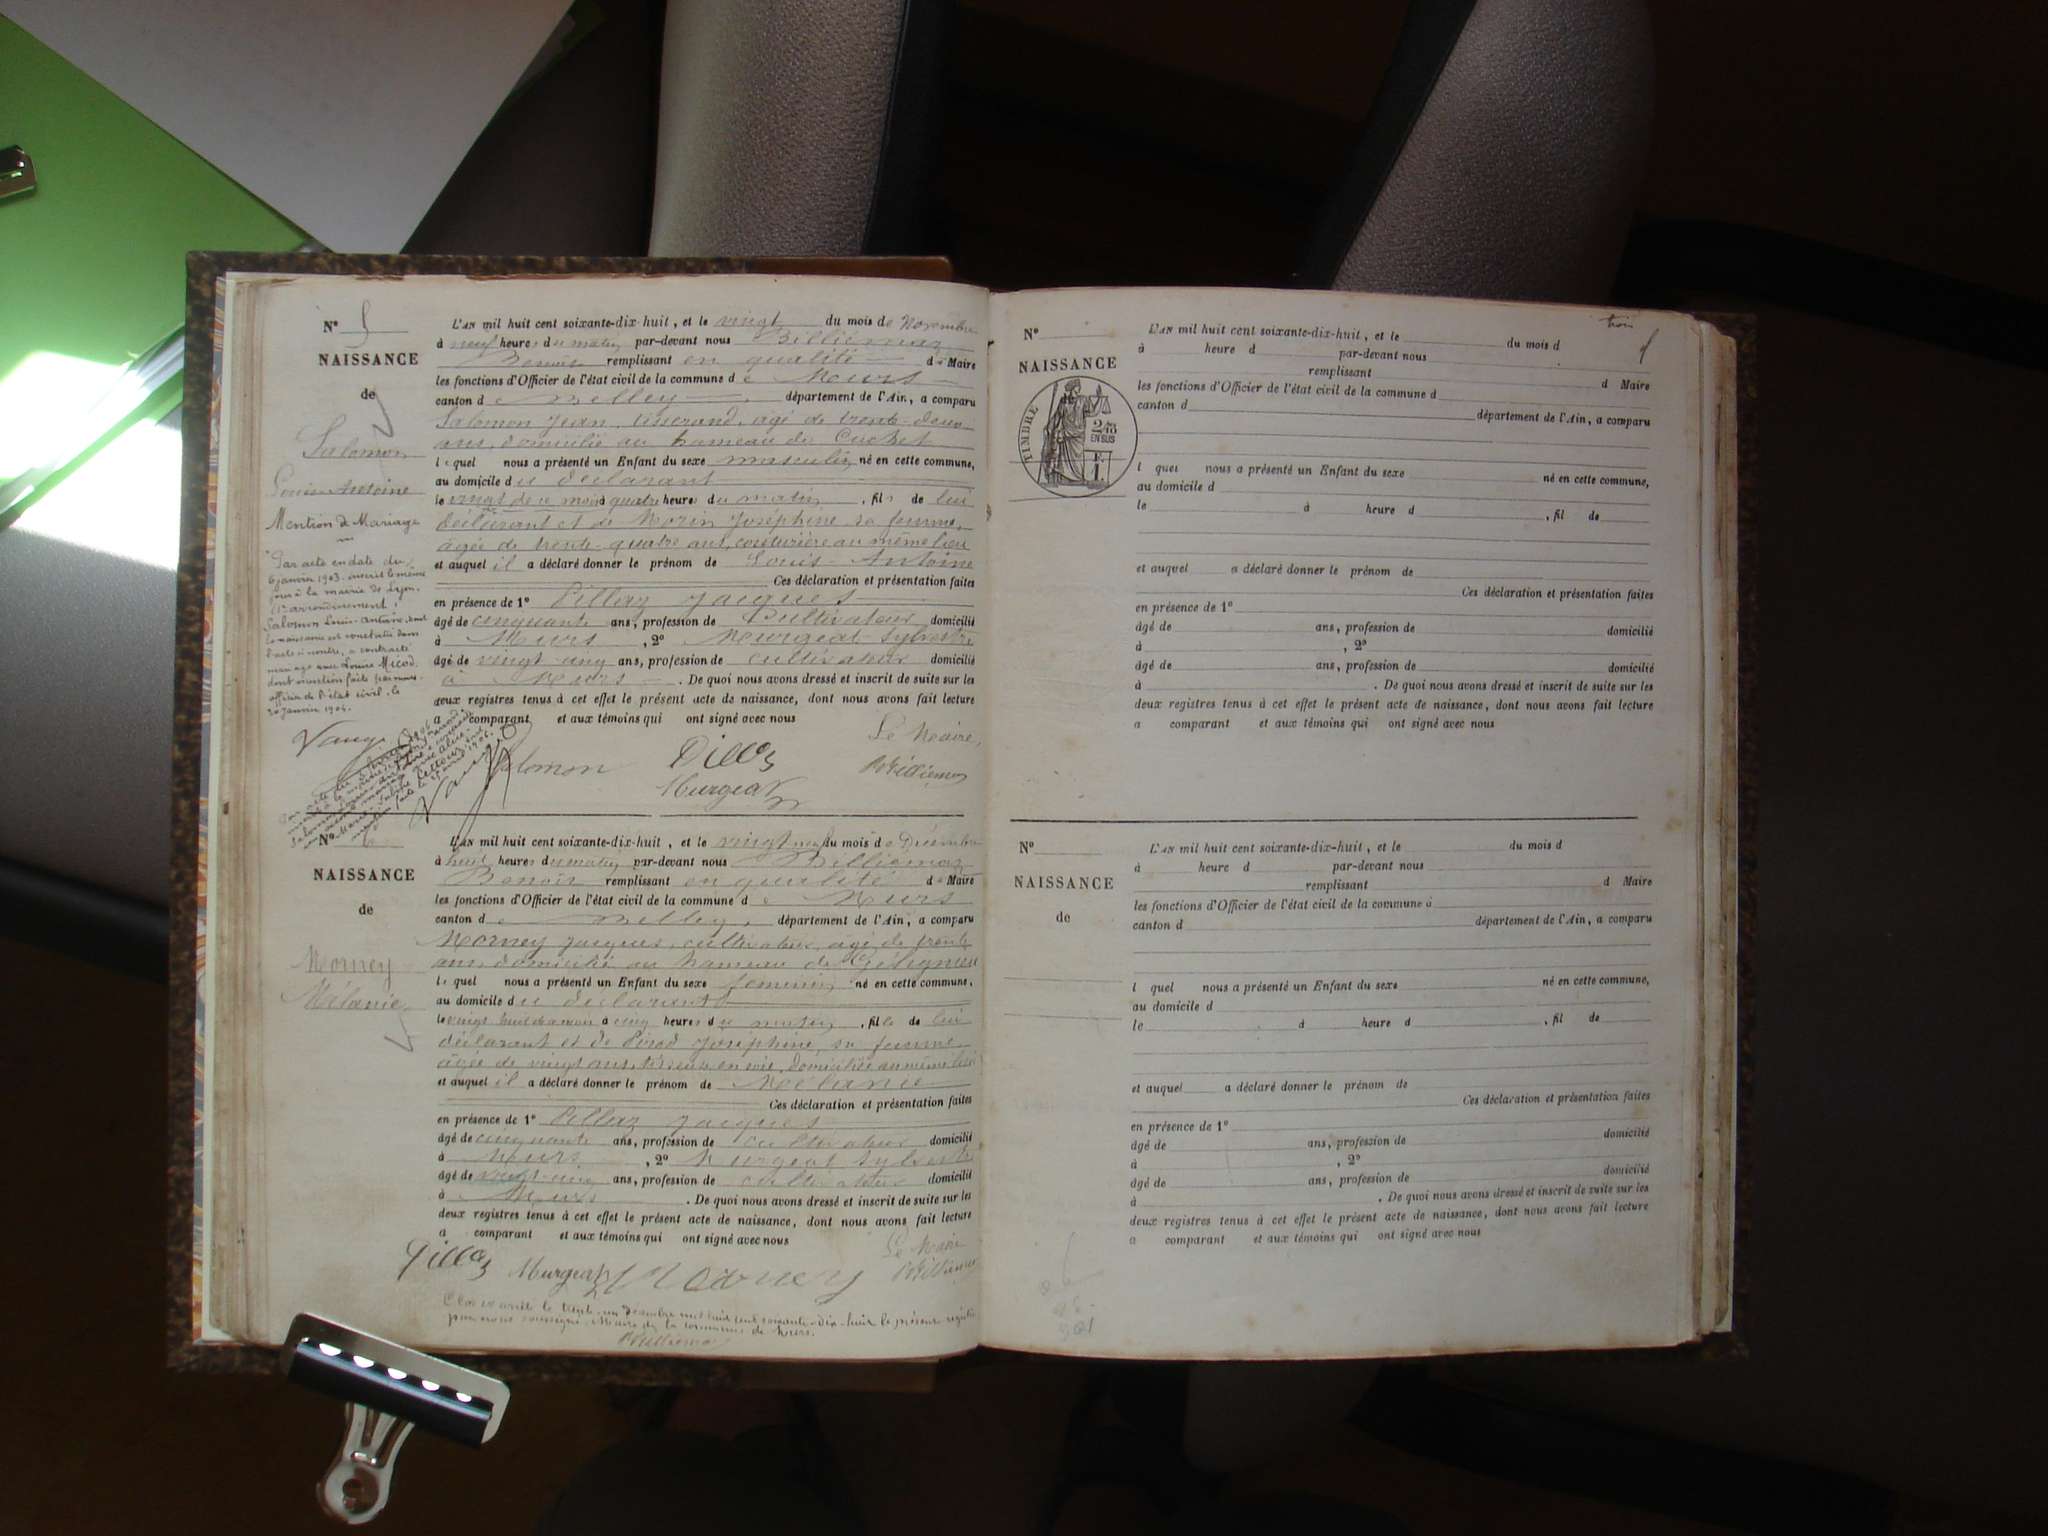 N° 5
NAISSANCE
de
Salomon
Louis Antoine
Mention de Mariage
Par acte en date du
6 janvier 1903 inscrit le même
jour à la mairie de Lyon
arrondissement
Salomon Louis-Antoine, dont
la naissance est constatée dans
l'acte ci-contre, a contracté
mariage avec Louise Micod
dont mention faite par nous
officier de l'état civil, le
20 Janvier 1904.
L'AN mil huit cent soixante-dix-huit, et le vingt du mois de Novembre
à neuf heures du matin par-devant nous Billiemaz
Benoît remplissant en qualité de Maire
les fonctions d'Officier de l'état civil de la commune de Murs
canton de Belley, département de l'Ain, a comparu
Salomon Jean, tisserand, âgé de trente-deux
ans, domicilié au hameau du Cuchet
lequel nous a présenté un Enfant du sexe masculin né en cette commune,
au domicile du déclarant
le vingt de ce mois à quatre heures du matin, fils de lui
déclarant et de Morin Joséphine, sa femme,
âgée de trente-quatre ans, couturière au même lieu
et auquel il a déclaré donner le prénom de Louis-Antoine
Ces déclaration et présentation faites
en présence de 1° Pillaz Jacques
âgé de cinquante ans, profession de Cultivateur domicilié
à Murs, 2° Murgeat Sylvestre
âgé de vingt-cinq ans, profession de cultivateur domicilié
à Murs. De quoi nous avons dressé et inscrit de suite sur les
deux registres tenus à cet effet le présent acte de naissance, dont nous avons fait lecture
a comparant et aux témoins qui ont signé avec nous
Le Maire,
Salomon Pillaz Billiemaz
Murgeat
N° 6
NAISSANCE
de
Morney
Mélanie
L'AN mil huit cent soixante-dix-huit, et le vingt neuf du mois de Décembre
à huit heures du matin par-devant nous Billiemaz
Benoît remplissant en qualité de Maire
les fonctions d'Officier de l'état civil de la commune de Murs
canton de Belley, département de l'Ain, a comparu
Morney Jacques, cultivateur, âgé de trente
ans, domicilié au hameau de Gélignieux
lequel nous a présenté un Enfant du sexe féminin né en cette commune,
au domicile du déclarant
le vingt huit du mois à cinq heures du matin, fille de lui
déclarant et de Joséphine, sa femme
âgée de vingt ans, tisseuse en soie, domiciliée au même lieu
et auquel il a déclaré donner le prénom de Mélanie
Ces déclaration et présentation faites
en présence de 1° Pillaz Jacques
âgé de cinquante ans, profession de cultivateur domicilié
à Murs, 2° Murgeat Sylvestre
âgé de vingt-cinq ans, profession de cultivateur domicilié
à Murs. De quoi nous avons dressé et inscrit de suite sur les
deux registres tenus à cet effet le présent acte de naissance, dont nous avons fait lecture
a comparant et aux témoins qui ont signé avec nous
Le Maire
Pillaz Murgeat Morney Billiemaz
Clos et arrêté le trente-un Décembre mil huit cent soixante-dix-huit le présent registre
par nous soussigné, Maire de la commune de Murs.
Billiemaz
trois
N°
NAISSANCE
TIMBRE
2/10
EN SUS
F.
1.
L'AN mil huit cent soixante-dix-huit, et le du mois d
à heure d par-devant nous
remplissant d Maire
les fonctions d'Officier de l'état civil de la commune d
canton d département de l'Ain, a comparu
l quel nous a présenté un Enfant du sexe né en cette commune,
au domicile d
le à heure d , fil de
et auquel a déclaré donner le prénom de
Ces déclaration et présentation faites
en présence de 1°
âgé de ans, profession de domicilié
à , 2°
âgé de ans, profession de domicilié
à . De quoi nous avons dressé et inscrit de suite sur les
deux registres tenus à cet effet le présent acte de naissance, dont nous avons fait lecture
a comparant et aux témoins qui ont signé avec nous
N°
NAISSANCE
de
L'AN mil huit cent soixante-dix-huit, et le du mois d
à heure d par-devant nous
remplissant d Maire
les fonctions d'Officier de l'état civil de la commune d
canton d département de l'Ain, a comparu
l quel nous a présenté un Enfant du sexe né en cette commune,
au domicile d
le à heure d , fil de
et auquel a déclaré donner le prénom de
Ces déclaration et présentation faites
en présence de 1°
âgé de ans, profession de domicilié
à , 2°
âgé de ans, profession de domicilié
à . De quoi nous avons dressé et inscrit de suite sur les
deux registres tenus à cet effet le présent acte de naissance, dont nous avons fait lecture
a comparant et aux témoins qui ont signé avec nous